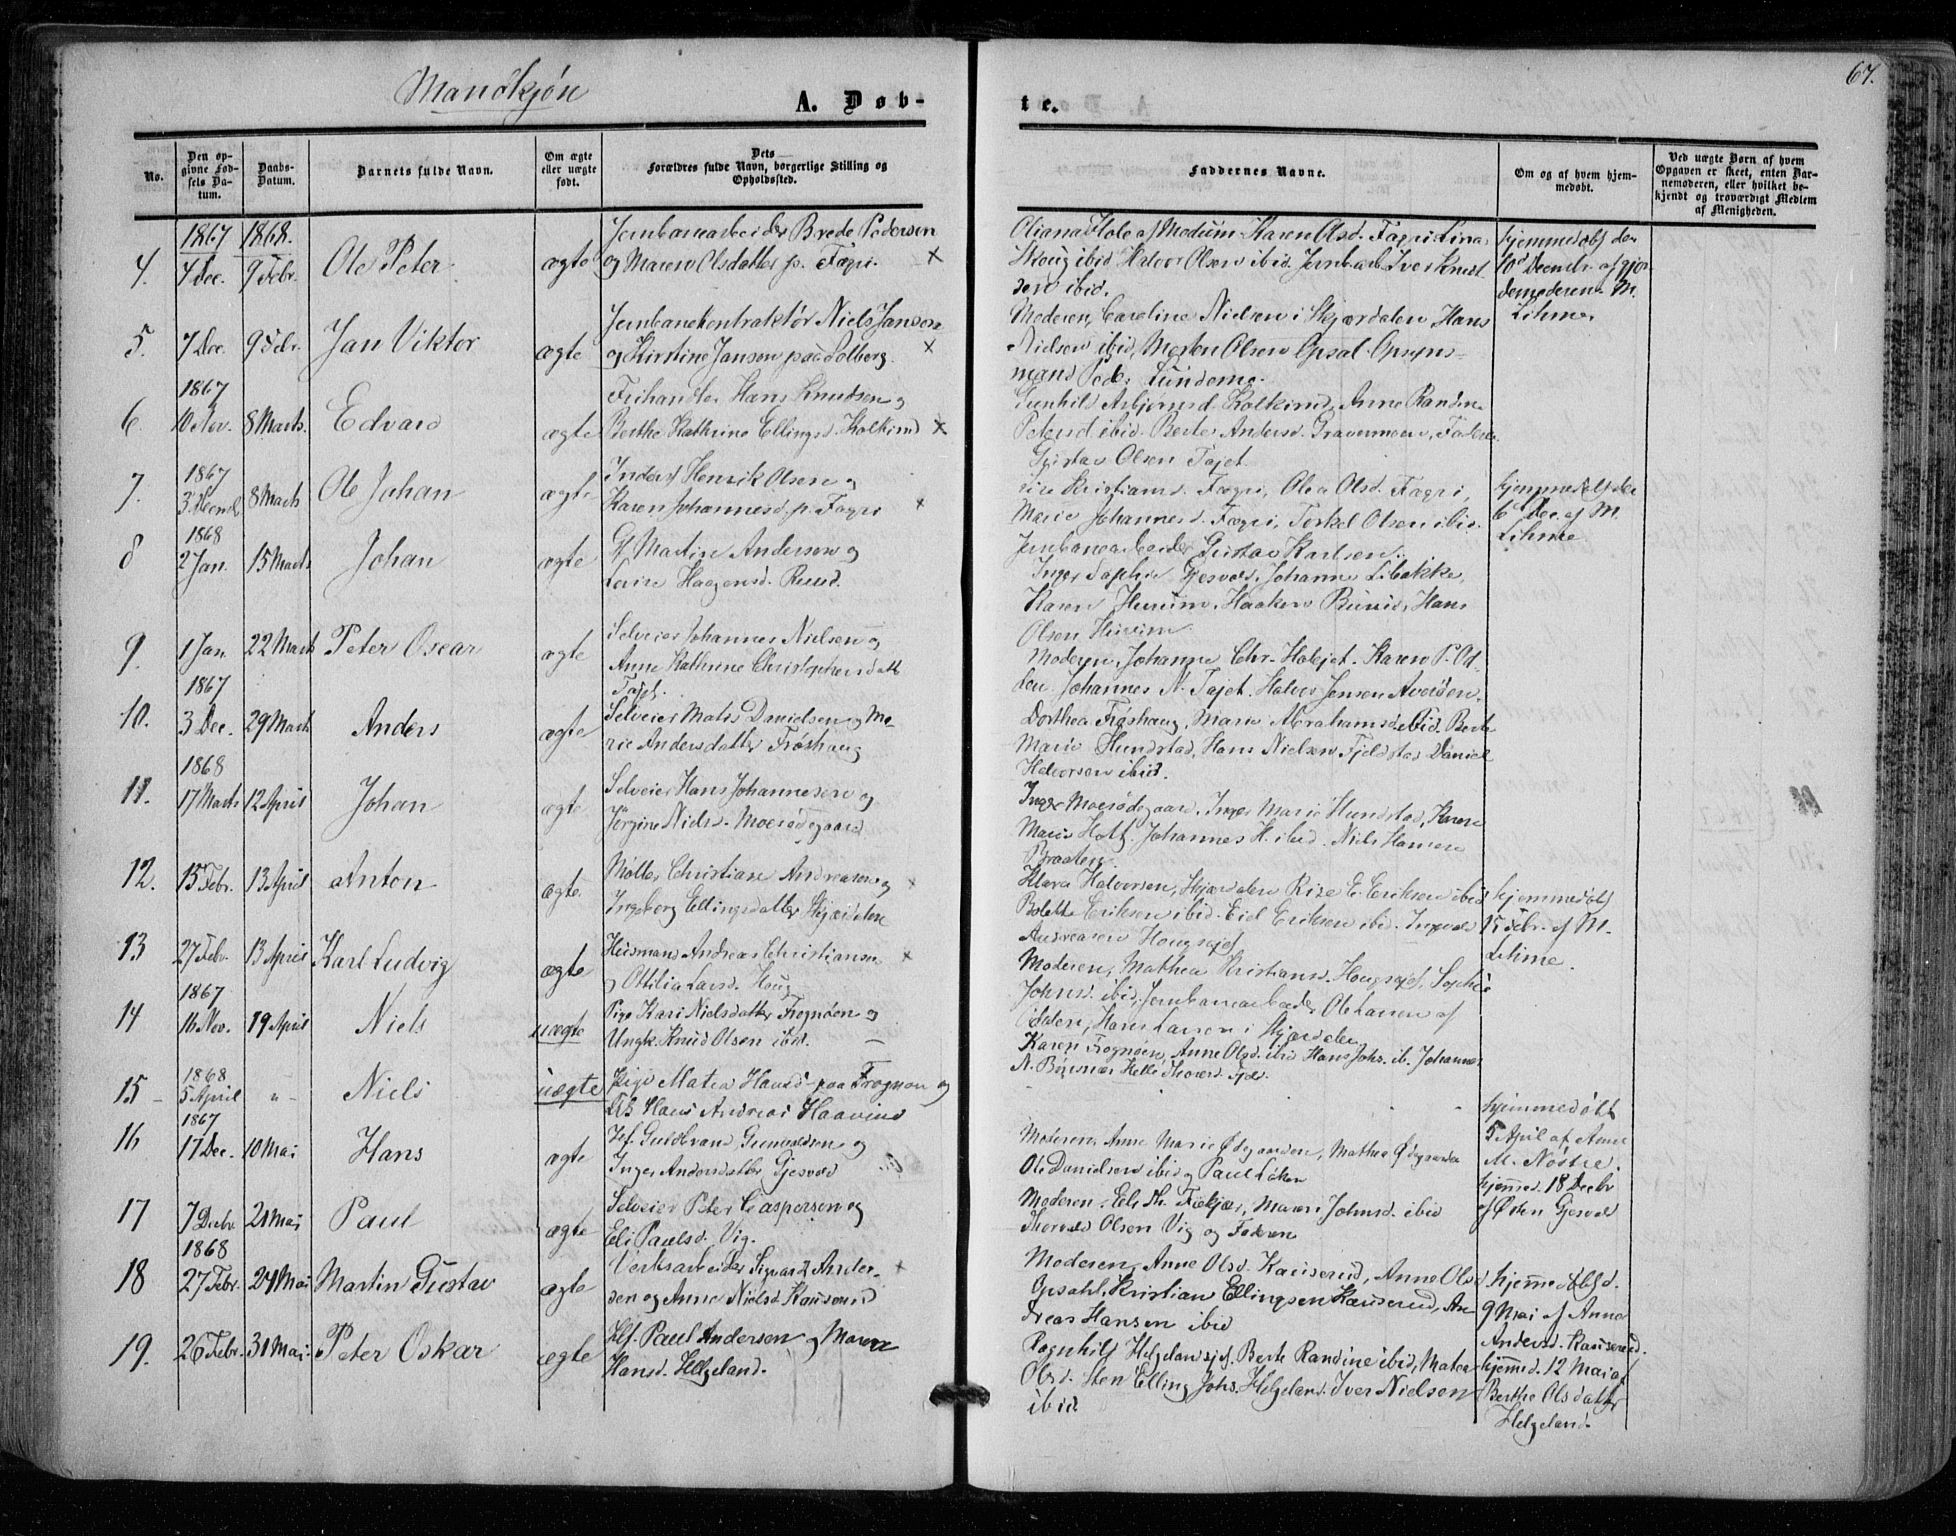 67.
Mandkjøn
A. Døb-
te.
No.
Den op-
givne Fød-
sels Da-
tum.
Daabs-
Datum.
Barnets fulde Navn.
Om ægte
eller uægte
født.
Dets
Forældres fulde Navn, borgerlige Stilling og
Opholdssted.
Faddernes Navne.
Om og af hvem hjem-
medøbt.
Ved uægte Børn af hvem
Opgaven er skeet, enten Bar-
nemoderen, eller hvilket be-
kjendt og troværdigt Medlem
af Menigheden.
1867 1868.
4. 4 Dec. 9 Febr. Ole Peter ægte
Jernbanearbeider Brede Pedersen
og Maren Olsdatter p. Fægri. ×
Oliana Hole af Modum. Karen Olsd. Fægri Lina
Houg ibid Halvor Olsen ibid. Jernbarb. Iver Knud-
sen ibid.
hjemmedøbt den
10d Decembr. af gjor-
demoderen M.
Lihme
5. 7 Dec. 9 Febr. Jan Viktor ægte
Jernbanekontraktør Niels Janson
og Kirstine Janson paa Solberg. ×
Moderen, Caroline Nielsen i Skjærdalen Hans
Nielsen ibid, Morten Olsen Opsal. Opsyns-
mand Peder Lundemo.
1867
6. 10 Nov. 8 Marts. Edvard ægte
Frihandler Hans Knudsen og
Berthe Kathrine Ellingsd. Kolkind ×
Gunhild Asbjørnsd. Kolkind, Anne Randine
Petersd ibid. Berte Andersd. Gravermoen, Faderen
Gustav Olsen Tajet.
1867
7. 3 Decmb 8 Marts Ole Johan ægte
Inders Henrik Olsen og
Karen Johannesd. p. Fægri ×
Kristiansd. Fægri, Olea Olsd. Fægri,
Marie Johannesd. Fægri, Torkel Olsen ibid.
hjemmedøbt den
6te Dec. af M.
Lihme
1868
8 2 Jan. 15 Marts Johan ægte
Gf. Martin Andersen og
Lovise Haagensd. Ruud.
Jernbanearbeider Gustav Karlsen.
Inger Sophie Gjesvold, Johanne Libakke,
Karen Hurum, Haaken Hans
Olsen Hurum
9. 1 Jan. 22 Marts Peter Oscar ægte
Selveier Johannes Nielsen og
Anne Kathrine Christophersdatt
Tajet.
Moderen, Johanne Chr. Holejet. Karen P. Od-
den. Johannes N. Tajet. Halvor Jensen Averøen.
1867
10. 3 Dec. 29 Marts Anders ægte
Selveier Mats Danielsen og Ma-
rie Andersdatter Frøshaug
Dorthea Frøshaug, Marie Abrahamsd. ibid. Berte
Marie Hundstad, Hans Nielsen Fjeldstad Daniel
Halvorsen ibid.
1868
11. 17 Marts 12 April Johan ægte
Selveier Hans Johannesen og
Jørgine Nielsd. Moesødegaard
Inger Moesødegaard, Inger Marie Hundstad, Karen
Marie Holt, Johannes H. ibid. Niels Hansen
Braaten.
12. 15 Febr. 13 April Anton ægte
Møller Christian Andreasen og ×
Ingeborg Ellingsdatter Skjærdalen
Klara Halvorsen, Skjærdalen E. Eriksen ibid
Bolette Eriksen ibid. Eriksen ibid. Ingvald
Andreasen Hougsejet
hjemmedøbt
15 Febr. af M.
Lihme.
13 27 Febr. 13 April Karl Ludvig ægte
Husmand Andreas Christiansen ×
og Ottilia Larsd. Houg
Moderen, Mathea Kristiansd. Hougsejet, Sophie
Johnsd. ibid, Jernbanearbeider Ole Larsen af
Odden, Hans Larsen i Skjærdalen
1867
14 16 Nov. 19 April Niels uægte
Pige Kari Nielsdatter Frognøen og
Ungk. Knud Olsen ibid. —
Karen Frognøen, Anne Olsd. ibid Hans Johs. ib. Johannes
N. Bønsnæs Helle Thoresd. Fjeld.
1868
15 5 April " Niels uægte
Pige Matea Hansd. paa Frognøen og
Hans Andreas Haavind
hjemmedøbt
5 April af Anne
M. Nøstre.
1867
16 17 Dec. 10 Mai Hans ægte
Hf. Guldbrand Gundersen og
Inger Andersdatter Gjesvold
Moderen, Anne Marie Ødegaarden, Mathea Ødegaarden
Ole Danielsen ibid og Paul Løken
hjemmed. 18 Decbr
af Østen Gjesvold
17 7 Decbr 21 Mai Paul ægte
Selveier Peter Caspersen og
Eli Paulsd. Vig.
Moderen, Eli Th. Fiekjær, Maren Johnsd. ibid
Thorvald Olsen Vig og Faderen
1868
18 27 Febr. 24 Mai Martin Gustav ægte
Verksarbeider Sigvard Ander- ×
sen og Anne Nielsd Kauserud
Moderen, Anne Olsd. Kauserud, Anne Olsd
Opsahl, Kristian Ellingsen Kauserud, An-
dreas Hansen ibid
hjemmedøbt d.
9 Mai af Anne
Andersd. Kauserud.
19. 26 Febr. 31 Mai. Peter Oskar ægte
Hf. Paul Andersen og Maren
Hansd. Helgeland.
Ragnhild Helgelandsejet. Berte Randine ibid, Matea
Olsd. Sten Elling Johs. Helgeland. Iver Nielsen
ibid
hjemmed. 12 Mai af
Berthe Olsdatter
Helgeland.